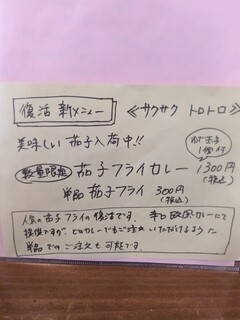 復活 新メニュー ≪サクサク トロトロ≫
美味しい 茄子入荷中!!
ゆで玉子
1個付
数量限定 茄子フライカレー 1300円
(税込)
単品 茄子フライ 300円
(税込)
人気の茄子フライの復活です。 辛口欧風カレーにて
提供ですが、ビーフカレーでもご注文いただけるように
単品でのご注文も可能です。